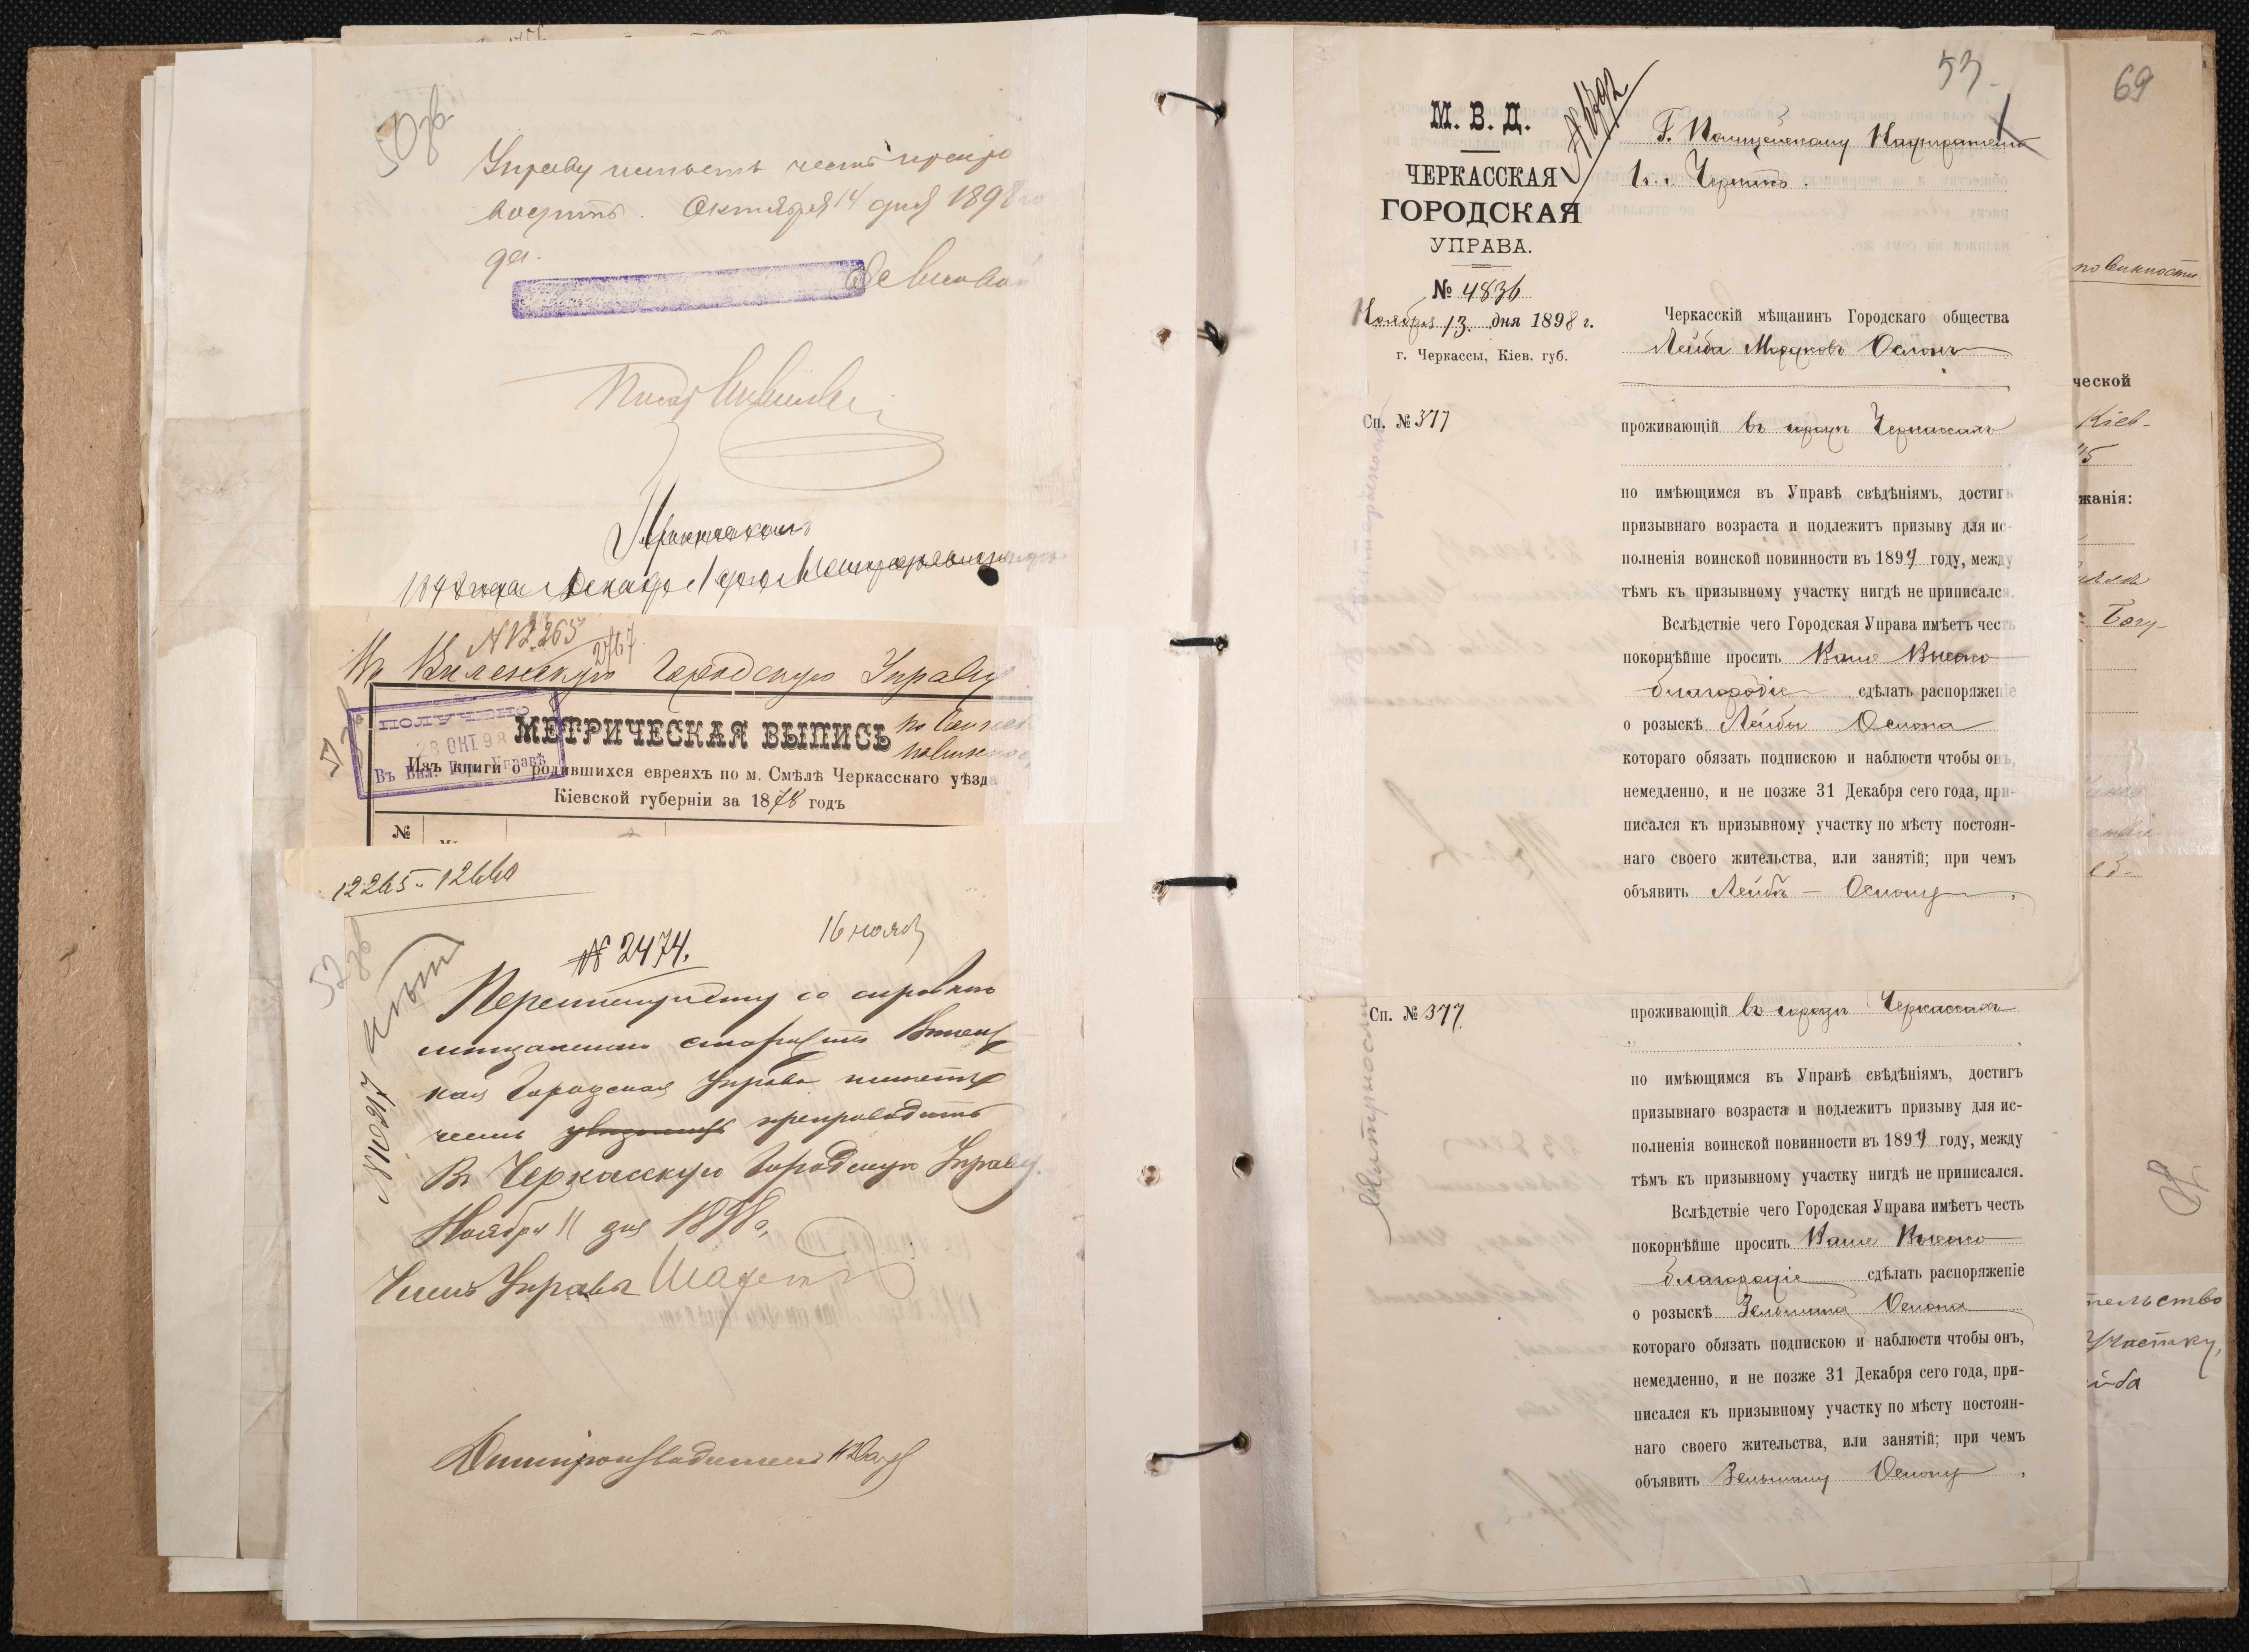 50 об
Управу имѣетъ честь препро
водить. Октября 14 дня 1898 го
да.
№ 12265
2767
Въ Виленскую Городскую Управу
ПОЛУЧЕНО
28 ОКТ. 98
Въ Вил. Гор. Управѣ
МЕТРИЧЕСКАЯ ВЫПИСЬ
Изъ книги о родившихся евреяхъ по м. Смѣлѣ Черкасскаго уѣзда
Кіевской губерніи за 1878 годъ
№
12265-12660
52 об
16 нояб
№ 2474.
№ 10217
мѣщанскаго старосты
кая Городская Управа имѣетъ
честь препроводить
Въ Черкасскую Городскую Управу.
Ноября 11 дня 1898 г.
Членъ Управы
Дѣлопроизводитель
53
М. В. Д.
ЧЕРКАССКАЯ
ГОРОДСКАЯ
УПРАВА.
№ 4836
Ноября 13 дня 1898 г.
г. Черкассы, Кіев. губ.
Г. Полицейскому Надзирателю
1й Части.
Черкасскій мѣщанинъ Городскаго общества
Лейба Мордковъ Ослонъ
Сп. № 377
проживающій въ городѣ Черкассахъ
по имѣющимся въ Управѣ свѣдѣніямъ, достигъ
призывнаго возраста и подлежитъ призыву для ис-
полненія воинской повинности въ 1899 году, между
тѣмъ къ призывному участку нигдѣ не приписался.
Вслѣдствіе чего Городская Управа имѣетъ честь
покорнѣйше просить Ваше Высоко
благородіе сдѣлать распоряженіе
о розыскѣ Лейбы Ослона
котораго обязать подпискою и наблюсти чтобы онъ,
немедленно, и не позже 31 Декабря сего года, при-
писался къ призывному участку по мѣсту постоян-
наго своего жительства, или занятій; при чемъ
объявить Лейбѣ Ослону,
Сп. № 377
проживающій въ городѣ Черкассахъ
по имѣющимся въ Управѣ свѣдѣніямъ, достигъ
призывнаго возраста и подлежитъ призыву для ис-
полненія воинской повинности въ 1899 году, между
тѣмъ къ призывному участку нигдѣ не приписался.
Вслѣдствіе чего Городская Управа имѣетъ честь
покорнѣйше просить Ваше Высоко
благородіе сдѣлать распоряженіе
о розыскѣ Зельмана Ослона
котораго обязать подпискою и наблюсти чтобы онъ,
немедленно, и не позже 31 Декабря сего года, при-
писался къ призывному участку по мѣсту постоян-
наго своего жительства, или занятій; при чемъ
объявить Зельману Ослону,
69
повинности
ческой
Кіев-
жанія:
Богу-
тельство
участку,
йба